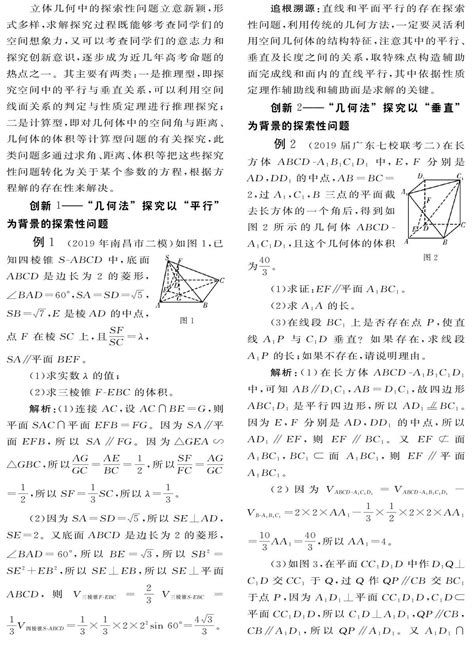 立体几何中的探索性问题立意新颖,形
式多样,求解探究过程既能够考查同学们的
空间想象力,又可以考查同学们的意志力和
探究创新意识,逐步成为近几年高考命题的
热点之一。其主要有两类:一是推理型,即探
究空间中的平行与垂直关系,可以利用空间
线面关系的判定与性质定理进行推理探究;
二是计算型,即对几何体中的空间角与距离、
几何体的体积等计算型问题的有关探究,此
类问题多通过求角、距离、体积等把这些探究
性问题转化为关于某个参数的方程,根据方
程解的存在性来解决。
创新 1——“几何法”探究以“平行”
为背景的探索性问题
例 1 (2019 年南昌市二模)如图 1,已
知四棱锥 S-ABCD 中,底面
ABCD 是边长为 2 的菱形,
∠BAD=60°,SA=SD=√5,
SB=√7,E 是棱 AD 的中点,
点 F 在棱 SC 上,且SF/SC=λ,
SA∥平面 BEF。
S
F
E
D
C
A
B
图 1
(1)求实数 λ 的值;
(2)求三棱锥 F-EBC 的体积。
解析:(1)连接 AC,设 AC∩BE=G,则
平面 SAC∩平面 EFB=FG。因为 SA∥平
面 EFB,所以 SA∥FG。因为△GEA∽
△GBC,所以AG/GC=AE/BC=1/2,所以SF/FC=AG/GC
=1/2,所以 SF=1/3SC,所以 λ=1/3。
(2)因为 SA=SD=√5,所以 SE⊥AD,
SE=2。又底面 ABCD 是边长为 2 的菱形,
∠BAD=60°,所以 BE=√3,所以 SB²=
SE²+EB²,所以 SE⊥EB,所以 SE⊥平面
ABCD,则 V三棱锥F-EBC=2/3V三棱锥S-EBC=
1/3V四棱锥S-ABCD=1/3×1/3×2×2²sin 60°=4√3/9。
追根溯源:直线和平面平行的存在探索
性问题,利用传统的几何方法,一定要灵活利
用空间几何体的结构特征,注意其中的平行、
垂直及长度之间的关系,取特殊点构造辅助
面完成线和面内的直线平行,其中依据性质
定理作辅助线和辅助面是求解的关键。
创新 2——“几何法”探究以“垂直”
为背景的探索性问题
例 2 (2019 届广东七校联考二)在长
方体 ABCD-A₁B₁C₁D₁ 中,E,F 分别是
AD,DD₁ 的中点,AB=BC=
2,过 A₁,C₁,B 三点的平面截
去长方体的一个角后,得到如
图 2 所示的几何体 ABCD-
A₁C₁D₁,且这个几何体的体积
为40/3。
D₁
C₁
A₁
F
E
D
C
A
B
图 2
(1)求证:EF∥平面 A₁BC₁。
(2)求 A₁A 的长。
(3)在线段 BC₁ 上是否存在点 P,使直
线 A₁P 与 C₁D 垂直?如果存在,求线段
A₁P 的长;如果不存在,请说明理由。
解析:(1)在长方体 ABCD-A₁B₁C₁D₁
中,可知 AB∥D₁C₁,AB=D₁C₁,故四边形
ABC₁D₁ 是平行四边形,所以 AD₁⊥̸BC₁。
因为 E,F 分别是 AD,DD₁ 的中点,所以
AD₁∥EF,则 EF∥BC₁。又 EF⊄面
A₁BC₁,BC₁⊂面 A₁BC₁,则 EF∥平面
A₁BC₁。
(2)因为 VABCD-A₁C₁D₁=VABCD-A₁B₁C₁D₁-
VB-A₁B₁C₁=2×2×AA₁-1/3×1/2×2×2×AA₁
=10/3AA₁=40/3,所以 AA₁=4。
(3)如图 3,在平面 CC₁D₁D 中作 D₁Q⊥
C₁D 交 CC₁ 于 Q,过 Q 作 QP∥CB 交 BC₁
于点 P,因为 A₁D₁⊥平面 CC₁D₁D,C₁D⊂
平面 CC₁D₁D,所以 C₁D⊥A₁D₁,QP∥CB,
CB∥A₁D₁,所以 QP∥A₁D₁。又 A₁D₁∩